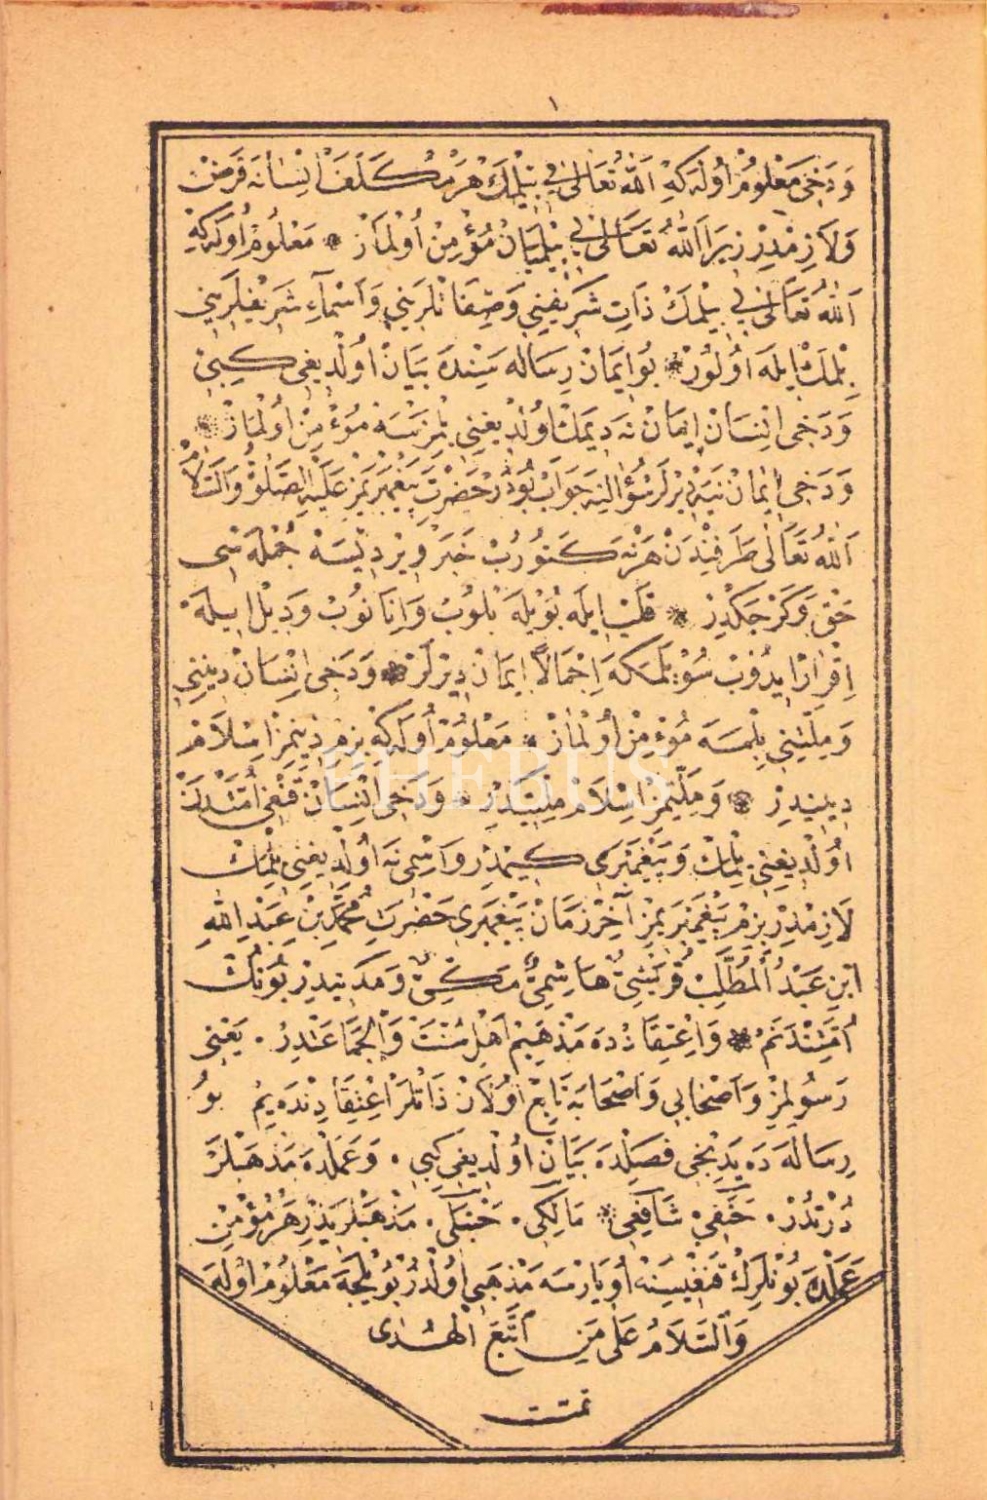 ١
وَدَخِى مَعْلُومْ اُولَه كِه اَللّٰهُ تَعَالٰى يِى بِيلْمَكْ هَرْ مُكَلَّفْ اِنْسَانَه فَرَضْ
وَلَازِمْدِرْ زِيرَا اَللّٰهُ تَعَالٰى يِى بِيلْمَيَانْ مُؤْمِنْ اُولْمَازْ * مَعْلُومْ اُولَه كِه
اَللّٰهُ تَعَالٰى يِى بِيلْمَكْ ذَاتِ شَرِيفِنِى وَصِفَاتْلَرِينِى وَاَسْمَآءِ شَرِيفْلَرِينِى
بِلْمَكْ اِيلَه اُولُورْ * بُو اِيمَانْ رِسَالَه سِنْدَه بَيَانْ اُولْدِيغِى كِبِى
وَدَخِى اِنْسَانْ اِيمَانْ نَه دِيمَكْ اُولْدِيغِنِى بِلْمَزْسَه مُؤْمِنْ اُولْمَازْ *
وَدَخِى اِيمَانْ نَيَه دِيرْلَرْ سُؤَالِنَه جَوَابْ بُودُرْ حَضْرَتِ پَيْغَمْبَرِيمِزْ عَلَيْهِ الصَّلٰوةُ وَالسَّلَامْ
اَللّٰهُ تَعَالٰى طَرَفِنْدَنْ هَرْ نَه كَتُورُبْ خَبَرْ وِيرْدِيسَه جُمْلَه سِى
حَقْ وَكَرْچَكْدِرْ * قَلْبْ اِيلَه بُويْلَه بِلُوبْ وَاِنَانُوبْ وَدِيلْ اِيلَه
اِقْرَارْ اِيدُوبْ سُويْلَمَكَه اِجْمَالًا اِيمَانْ دِيرْلَرْ * وَدَخِى اِنْسَانْ دِينِنِى
وَمِلَّتِنِى بِلْمَسَه مُؤْمِنْ اُولْمَازْ * مَعْلُومْ اُولَه كِه بِزِمْ دِينِمِزْ اِسْلَامْ
دِينِيدِرْ * وَمِلَّتِمِزْ اِسْلَامْ مِلَّتِيدِرْ * وَدَخِى اِنْسَانْ قَنْغِى اُمَّتْدَنْ
اُولْدِيغِنِى بِلْمَكْ وَپَيْغَمْبَرِى كِيمْدِرْ وَاِسْمِى نَه اُولْدِيغِنِى بِلْمَكْ
لَازِمْدِرْ بِزِمْ پَيْغَمْبَرِيمِزْ آخِرْ زَمَانْ پَيْغَمْبَرِى حَضْرَتِ مُحَمَّدْ بِنْ عَبْدِ اللّٰهِ
اِبْنِ عَبْدُ الْمُطَّلِبْ قُرَيْشِىٌّ هَاشِمِىٌّ مَكِّىٌّ وَمَدَنِيدِرْ بُونُكْ
اُمَّتِنْدَنِمْ * وَاِعْتِقَادْدَه مَذْهَبِمْ اَهْلِ سُنَّتْ وَالْجَمَاعَتْدِرْ . يَعْنِى
رَسُولِمِزْ وَاَصْحَابِى وَاَصْحَابَه تَابِعْ اُولَانْ ذَاتْلَرْ اِعْتِقَادِنْدَه يِمْ بُو
رِسَالَه دَه يَدِنْجِى فَصِلْدَه بَيَانْ اُولْدِيغِى كِبِى . وَعَمَلْدَه مَذْهَبْلَرْ
دُرْتْدُرْ . حَنَفِى شَافِعِى * مَالِكِى . حَنْبَلِى . مَذْهَبْلَرِيدِرْ هَرْ مُؤْمِنْ
عَمَلْدَه بُونْلَرِكْ قَنْغِيسِنَه اُويَارْسَه مَذْهَبِى اُولْدُرْ بُويْلَجَه مَعْلُومْ اُولَه
وَالسَّلَامُ عَلٰى مَنِ اتَّبَعَ الْهُدٰى
تمت
PHEBUS